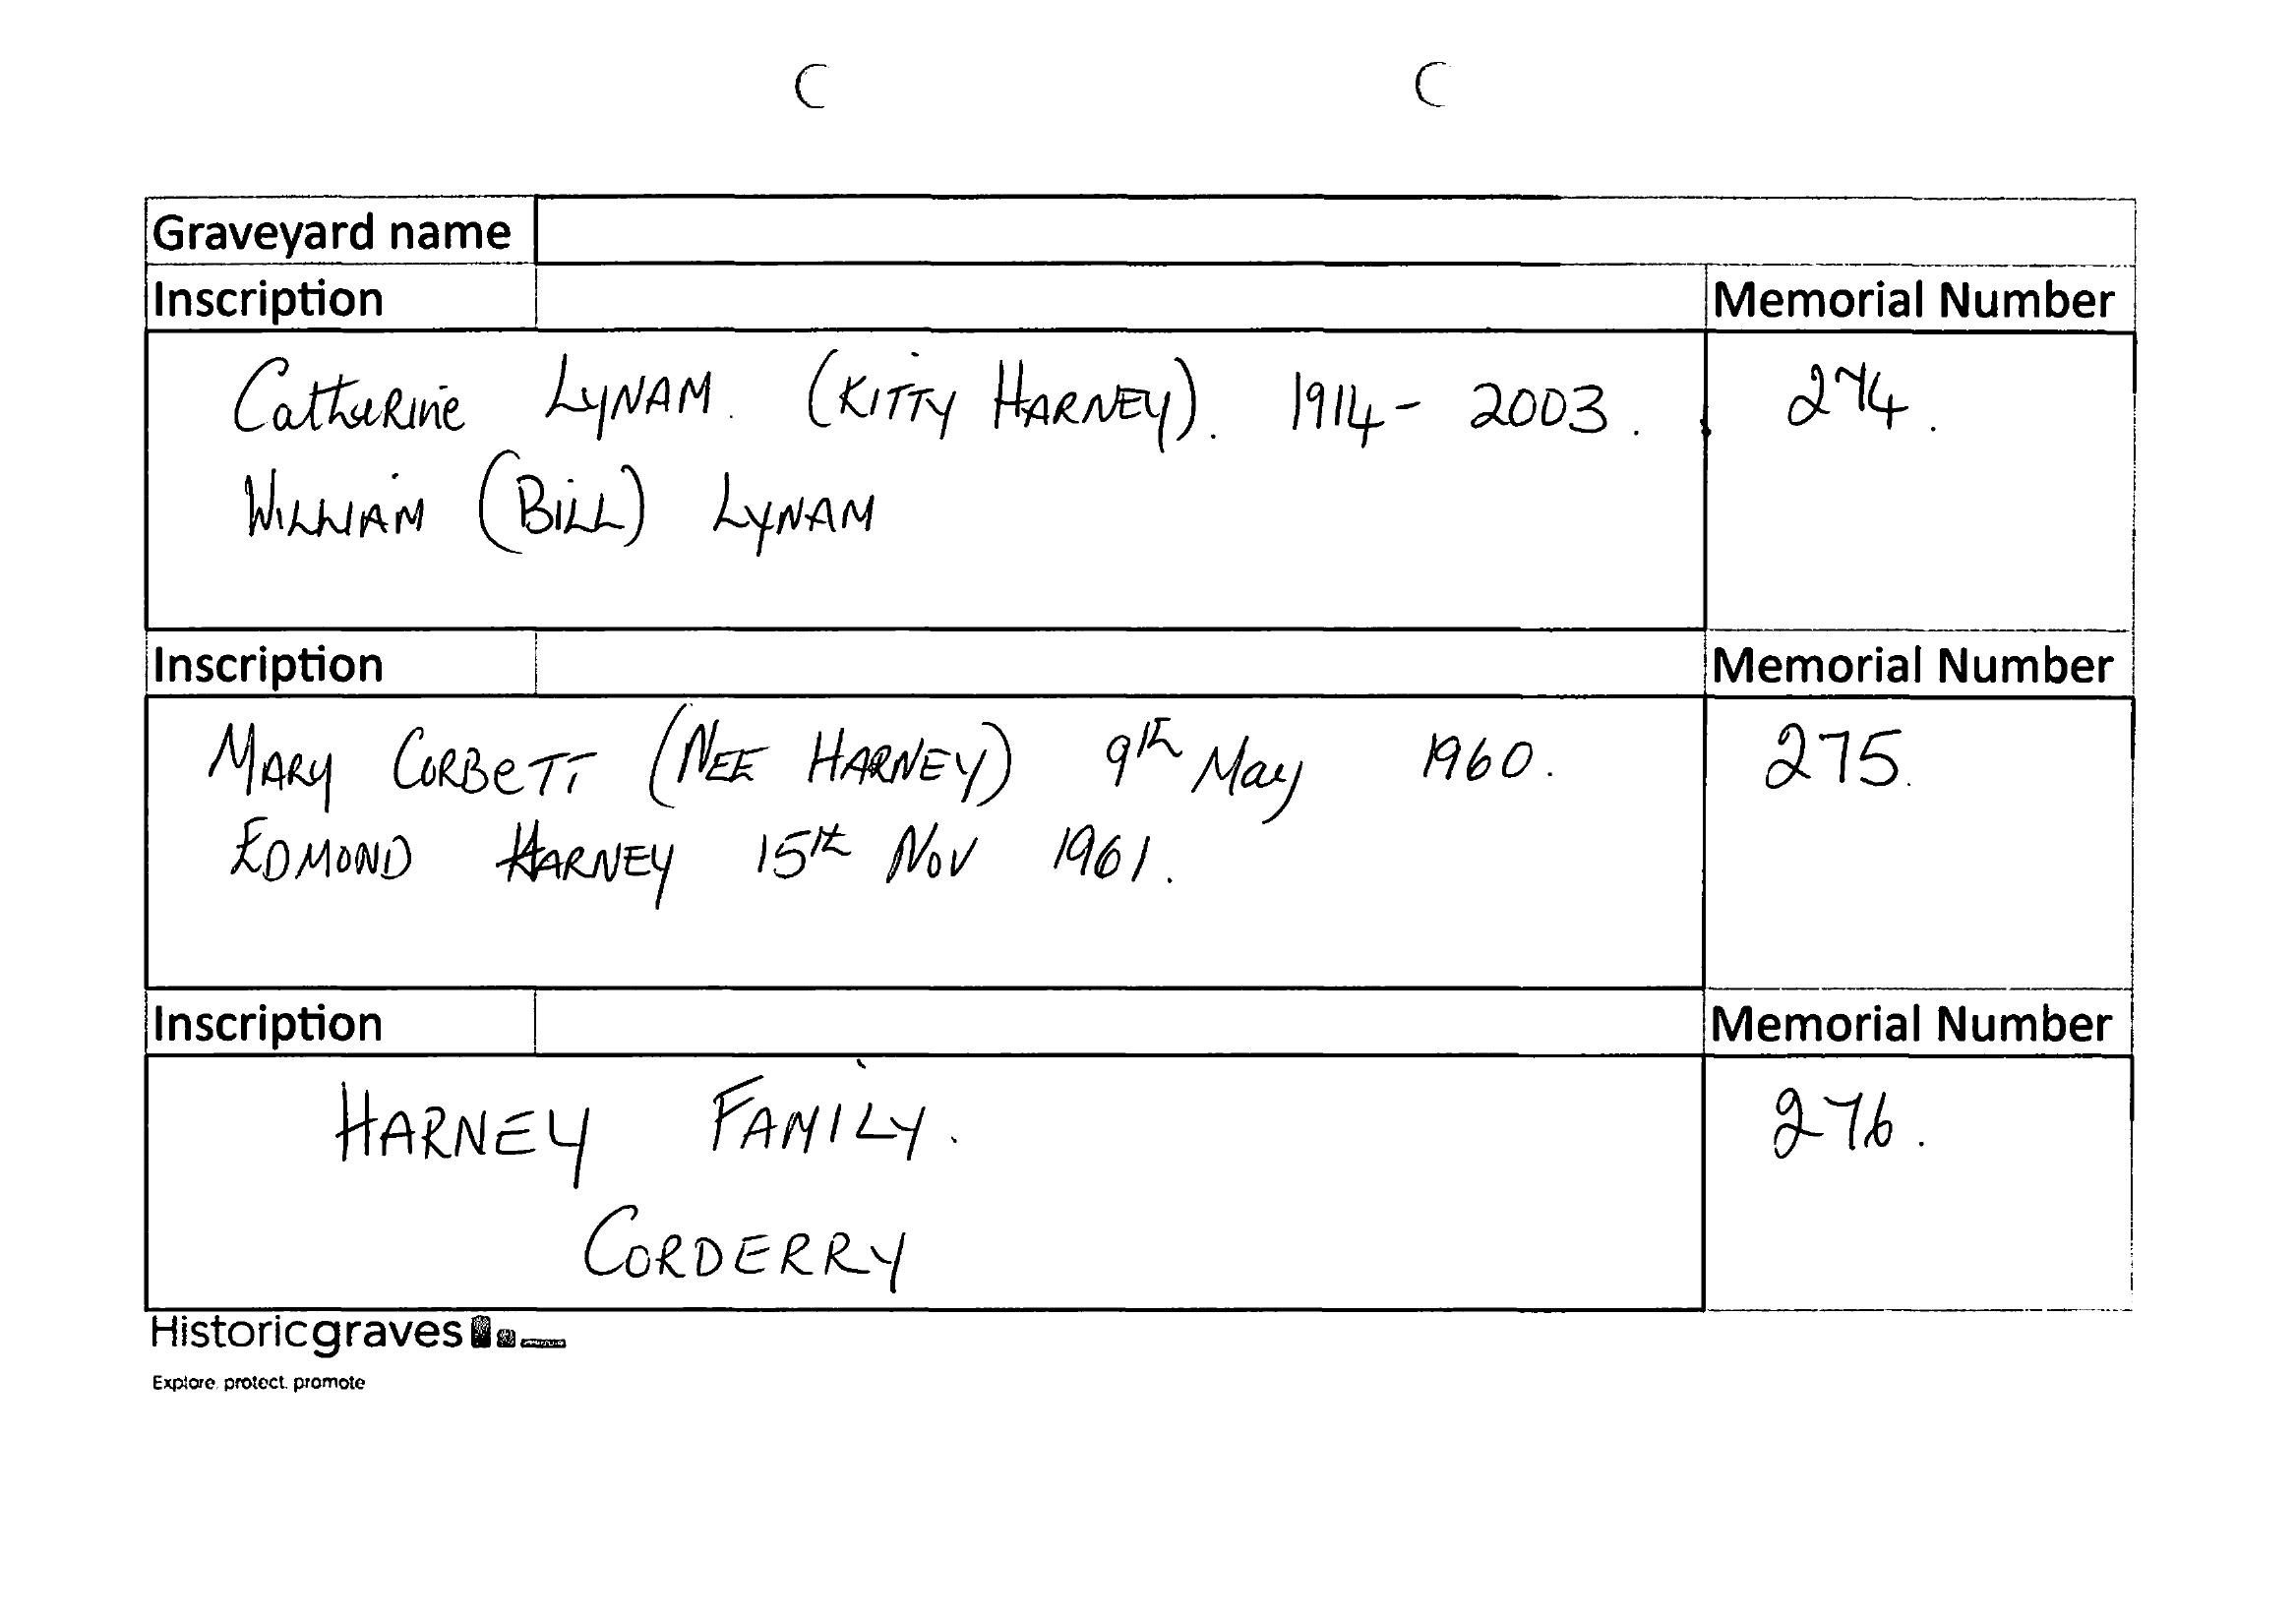 Graveyard name
Inscription Memorial Number
Catherine LYNAM. (KITTY HARNEY). 1914 - 2003. 274.
WILLIAM (BILL) LYNAM
Inscription Memorial Number
MARY CORBETT (NEE HARNEY) 9th May 1960. 275.
EDMOND HARNEY 15th Nov 1961.
Inscription Memorial Number
HARNEY FAMILY. 276.
CORDERRY
Historicgraves
Explore. protect. promote